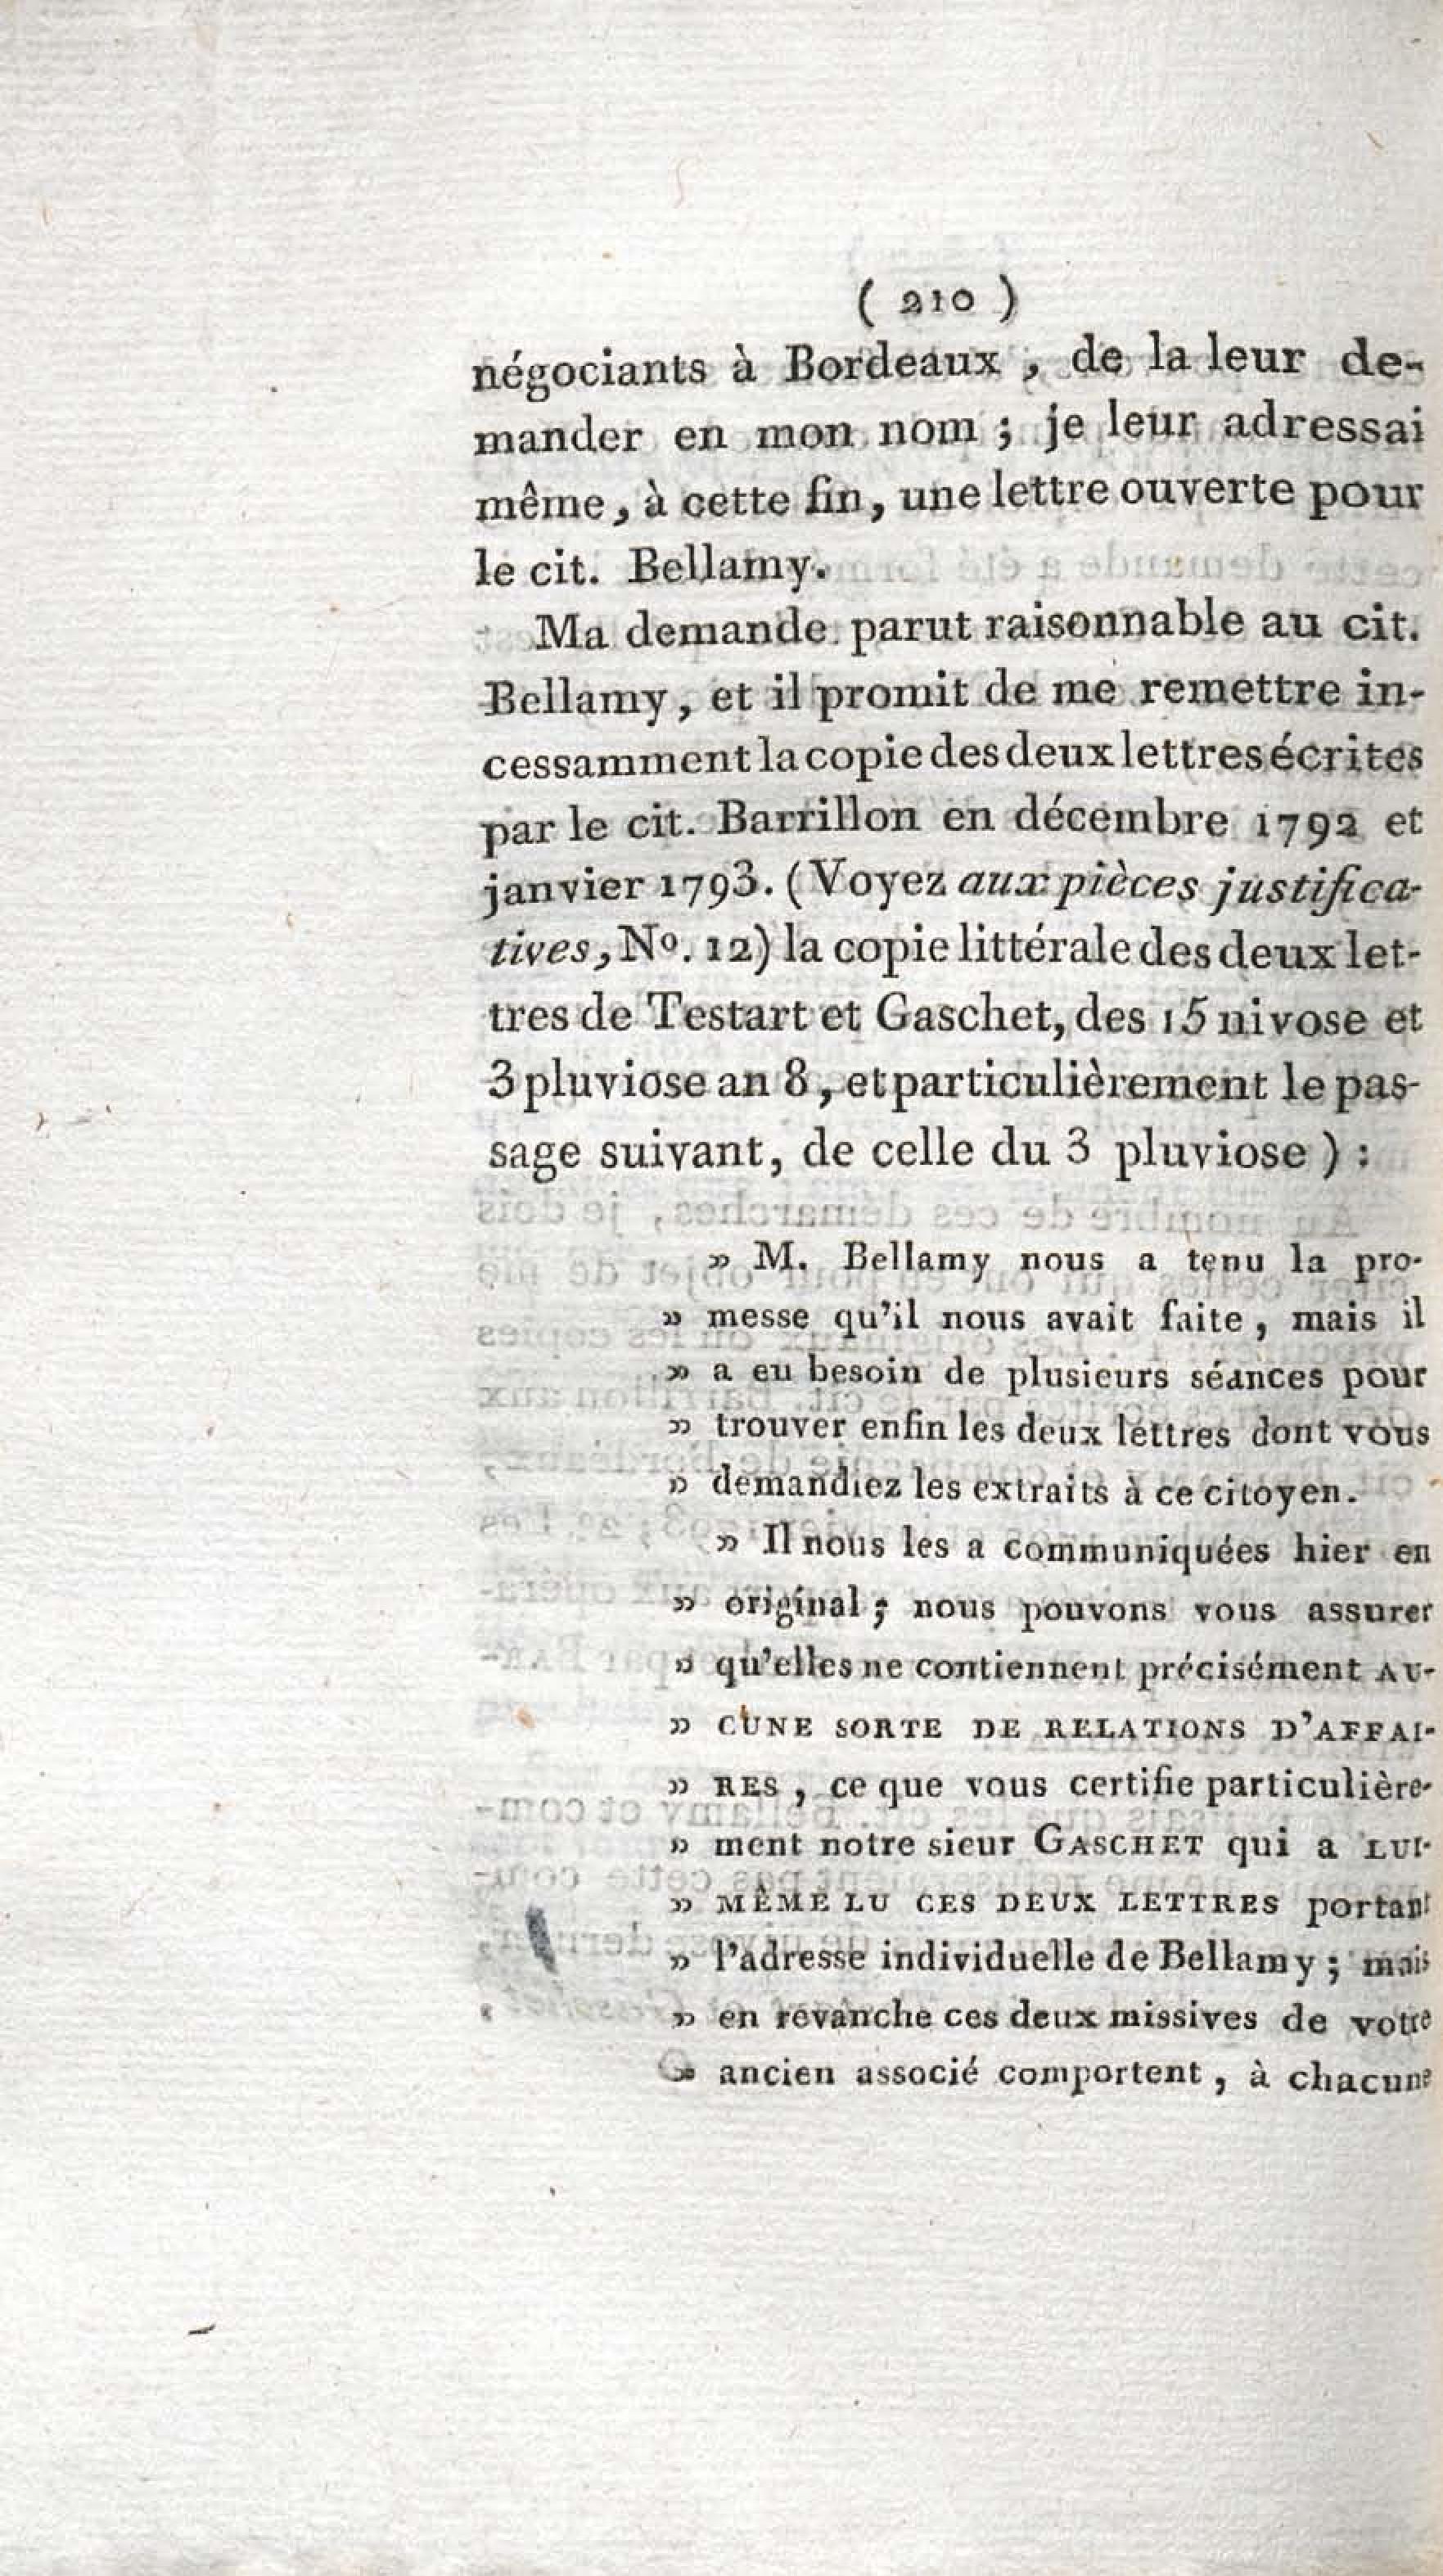 ( 210 )
négociants à Bordeaux , de la leur de-
mander en mon nom ; je leur adressai
même, à cette fin, une lettre ouverte pour
le cit. Bellamy.
Ma demande parut raisonnable au cit.
Bellamy, et il promit de me remettre in-
cessamment la copie des deux lettres écrites
par le cit. Barrillon en décembre 1792 et
janvier 1793. (Voyez aux pièces justifica-
tives, Nº. 12) la copie littérale des deux let-
tres de Testart et Gaschet, des 15 nivose et
3 pluviose an 8, et particulièrement le pas-
sage suivant, de celle du 3 pluviose ) :
» M. Bellamy nous a tenu la pro-
» messe qu'il nous avait faite , mais il
» a eu besoin de plusieurs séances pour
» trouver enfin les deux lettres dont vous
» demandiez les extraits à ce citoyen.
» Il nous les a communiquées hier en
» original ; nous pouvons vous assurer
» qu'elles ne contiennent précisément AU-
» CUNE SORTE DE RELATIONS D'AFFAI-
» RES , ce que vous certifie particulière-
» ment notre sieur GASCHET qui a LUI-
» MÊME LU CES DEUX LETTRES portant
» l'adresse individuelle de Bellamy ; mais
» en revanche ces deux missives de votre
» ancien associé comportent , à chacune